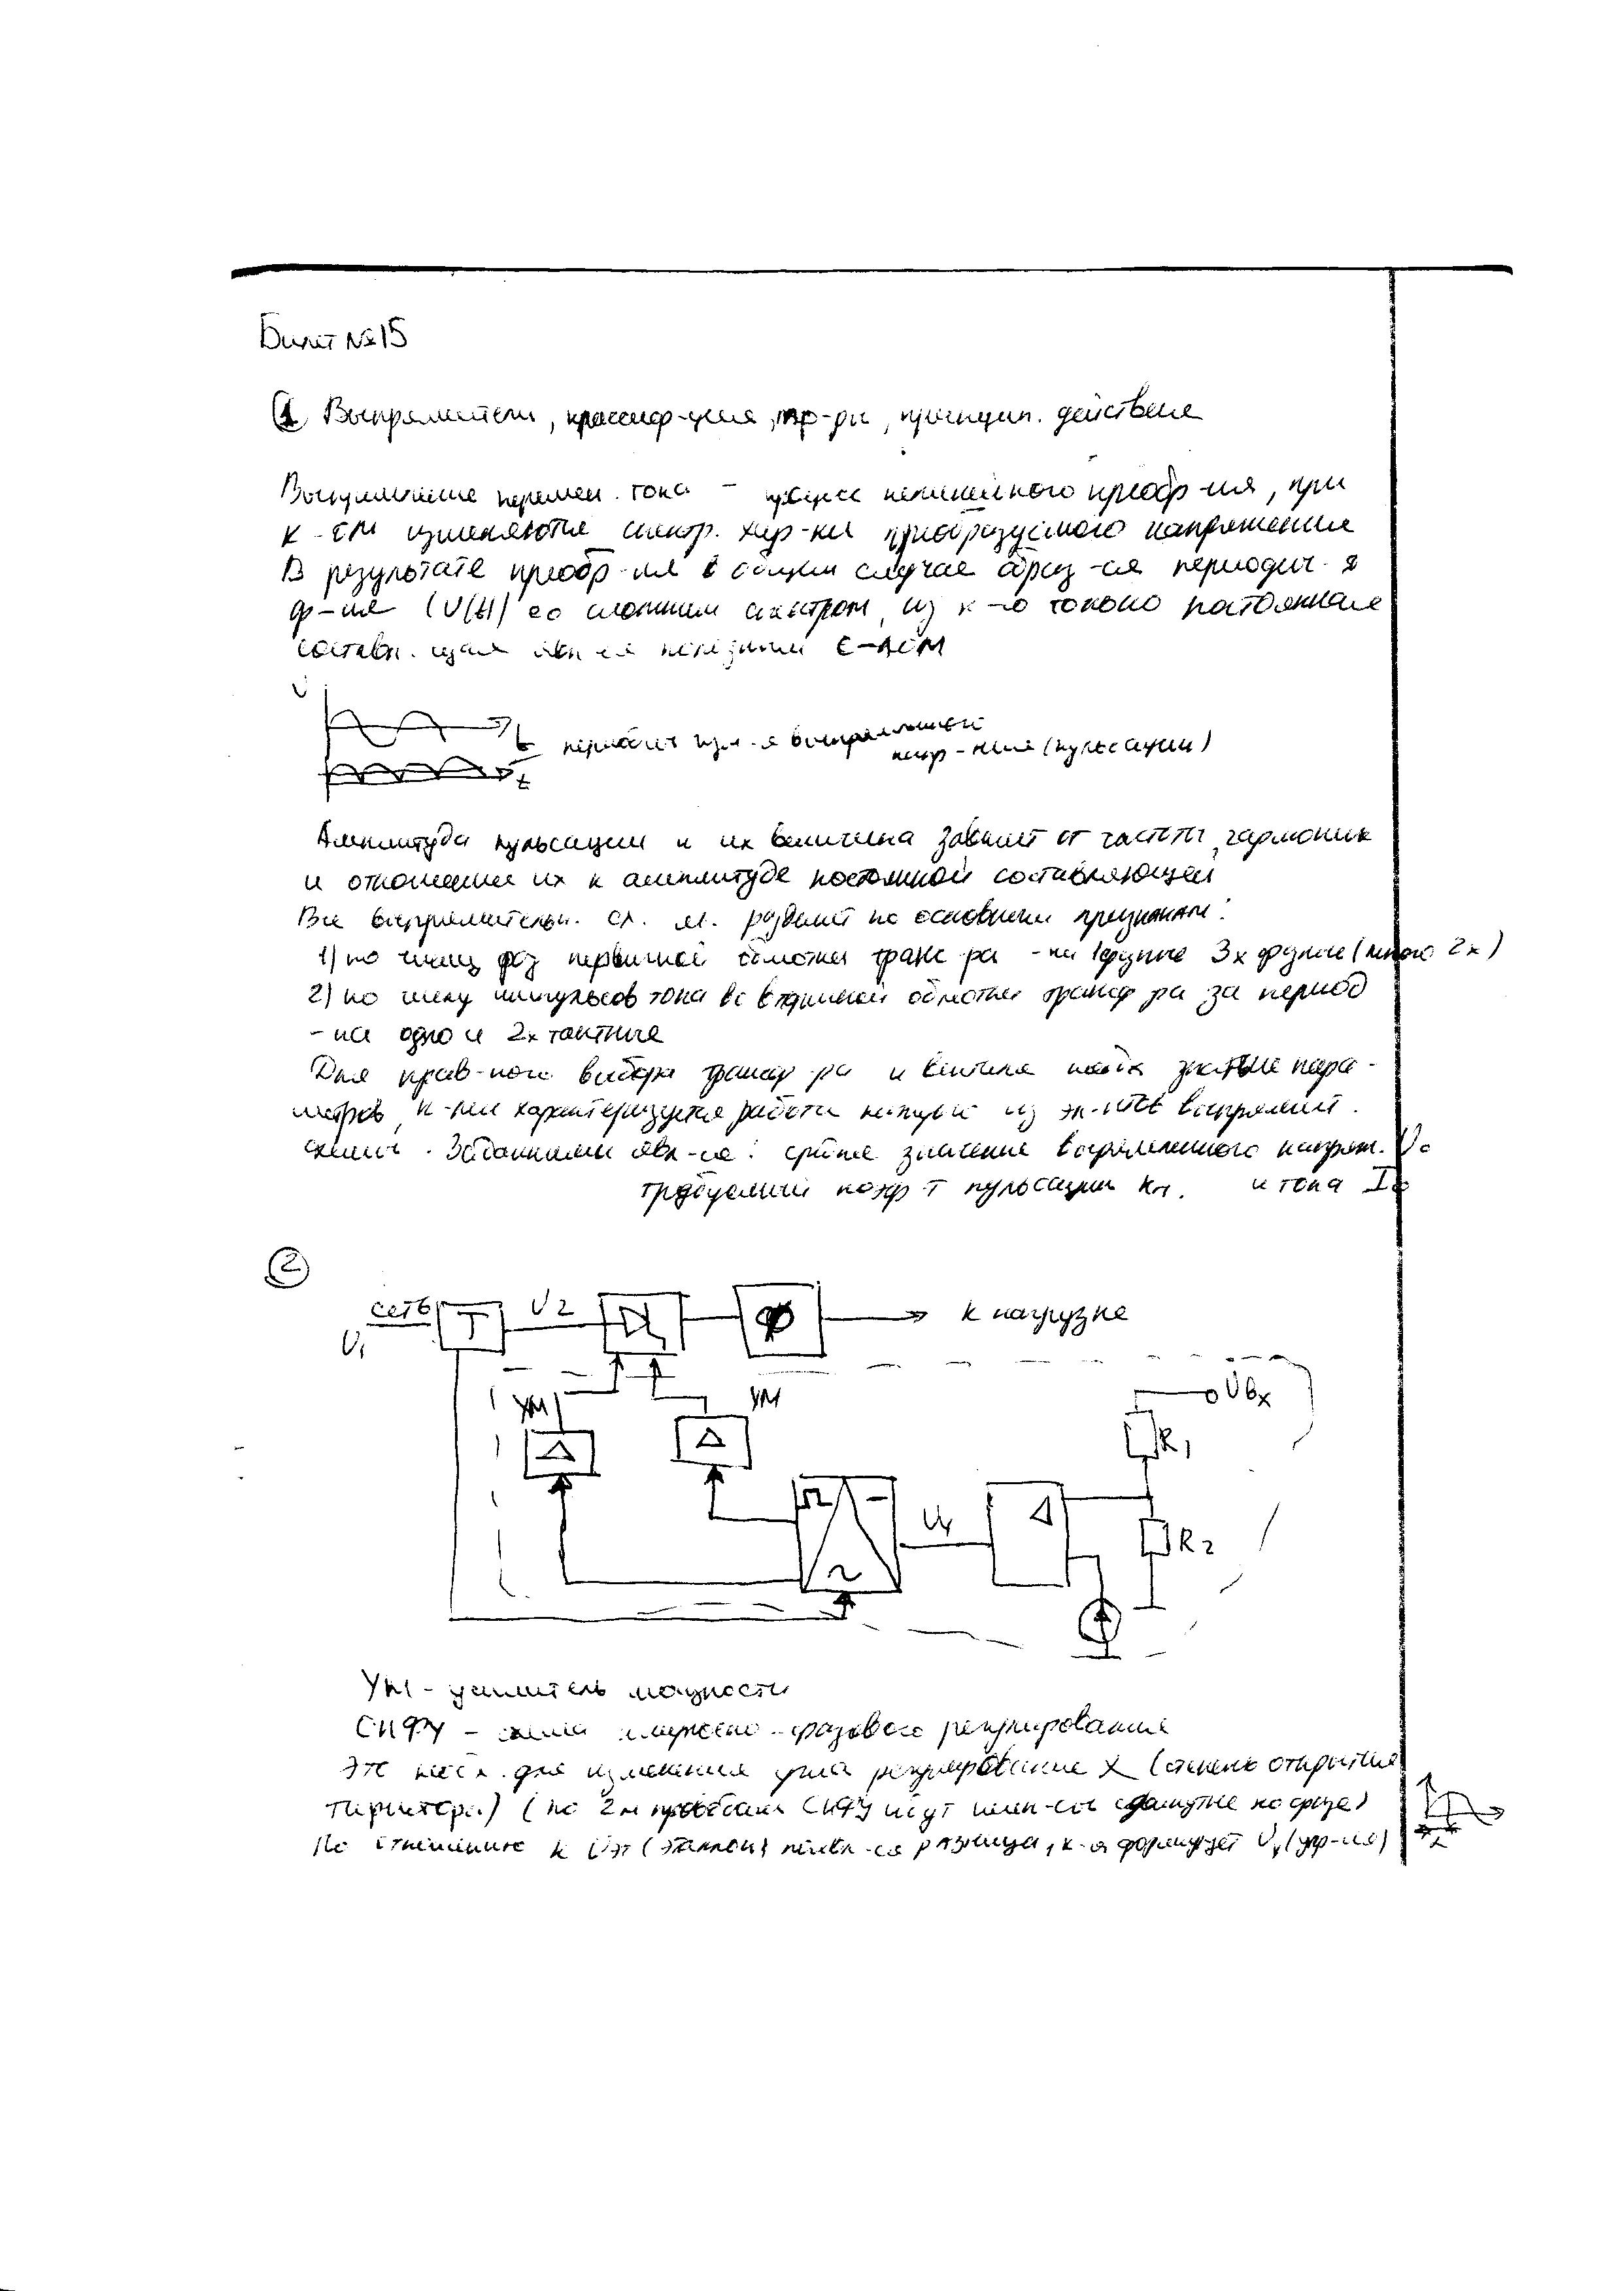 Билет №15
1 Выпрямители, классиф-ция, пар-ры, принцип. действие
Выпрямление перемен. тока - процесс нелинейного преобр-ия, при
к-ом изменяются спектр. хар-ки преобразуемого напряжения
В результате преобр-ия в общем случае образ-ся периодич. я
ф-ия (U(t)) со сложным спектром, из к-го только постоянная
составл. щая явл-ся полезным с-лом
U
t
t
выпрямленной
напр-ния (пульсации)
Амплитуда пульсации и их величина зависит от частоты гармоник
и отношении их к амплитуде постоянной составляющей
Все выпрямительн. сх. м. разбит по основным признакам:
1) по числу фаз первичной обмотки транс ра - на 1фазные 3х фазные (много 2х)
2) по числу импульсов тока во вторичной обмотки трансф ра за период
- на одно и 2х тактные
Для прав-ного выбора трансф ра и вентиля надо знать пара-
метров, к-ми характеризуется работа каждый из эл-тов выпрямит.
схемы. Заданными явл-ся: среднее значение выпрямленного напряж. U0
требуемый коэф т пульсации кп. и тока I0
2
сеть
U1
T
U2
Ф
к нагрузке
УМ
УМ
Uвх
R1
Uy
R2
УМ - усилитель мощности
СИФУ - схема импульсно-фазового регулирования
Это необх. для изменения угла регулирование α (степень открытия
тиристора) (по 2м проводам СИФУ идут имп-сы сдвинутые по фазе)
По отношению к Uэт (эталон) появл-ся разница, к-я формирует Uy (упр-ия)